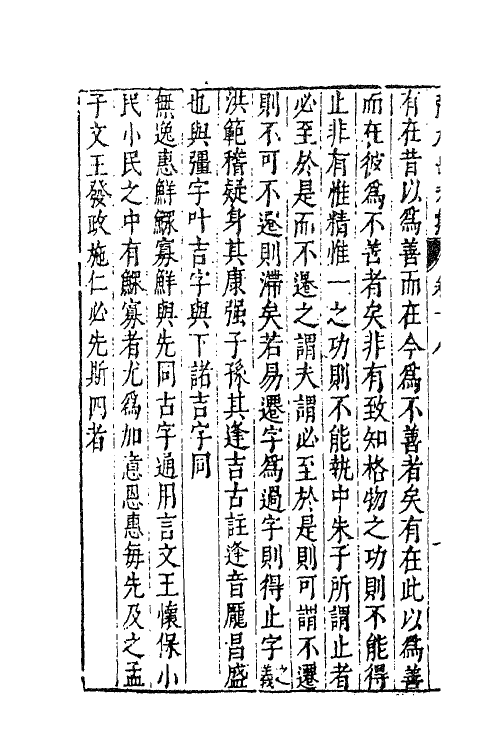 有在昔以為善而在今為不善者矣有在此以為善
而在彼為不善者矣非有致知格物之功則不能得
止非有惟精惟一之功則不能執中朱子所謂止者
必至於是而不遷之謂夫謂必至於是則可謂不遷
則不可不遷則滯矣若易遷字為過字則得止字義之
洪範稽疑身其康强子孫其逢吉古註逢音龎昌盛
也與彊字叶吉字與下諸吉字同
無逸惠鮮鰥寡鮮與先同古字通用言文王懷保小
民小民之中有鰥寡者尤為加意恩惠每先及之孟
子文王發政施仁必先斯四者